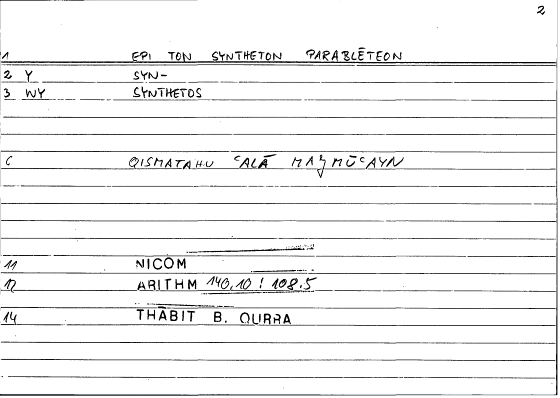 2
1 EPI TON SYNTHETON PARABLĒTEON
2 Y SYN-
3 WY SYNTHETOS
C QISMATAHU ʿALĀ MAǦMŪʿAYN
11 NICOM
12 ARITHM 140,10 ! 108.5
14 THĀBIT B. QURRA